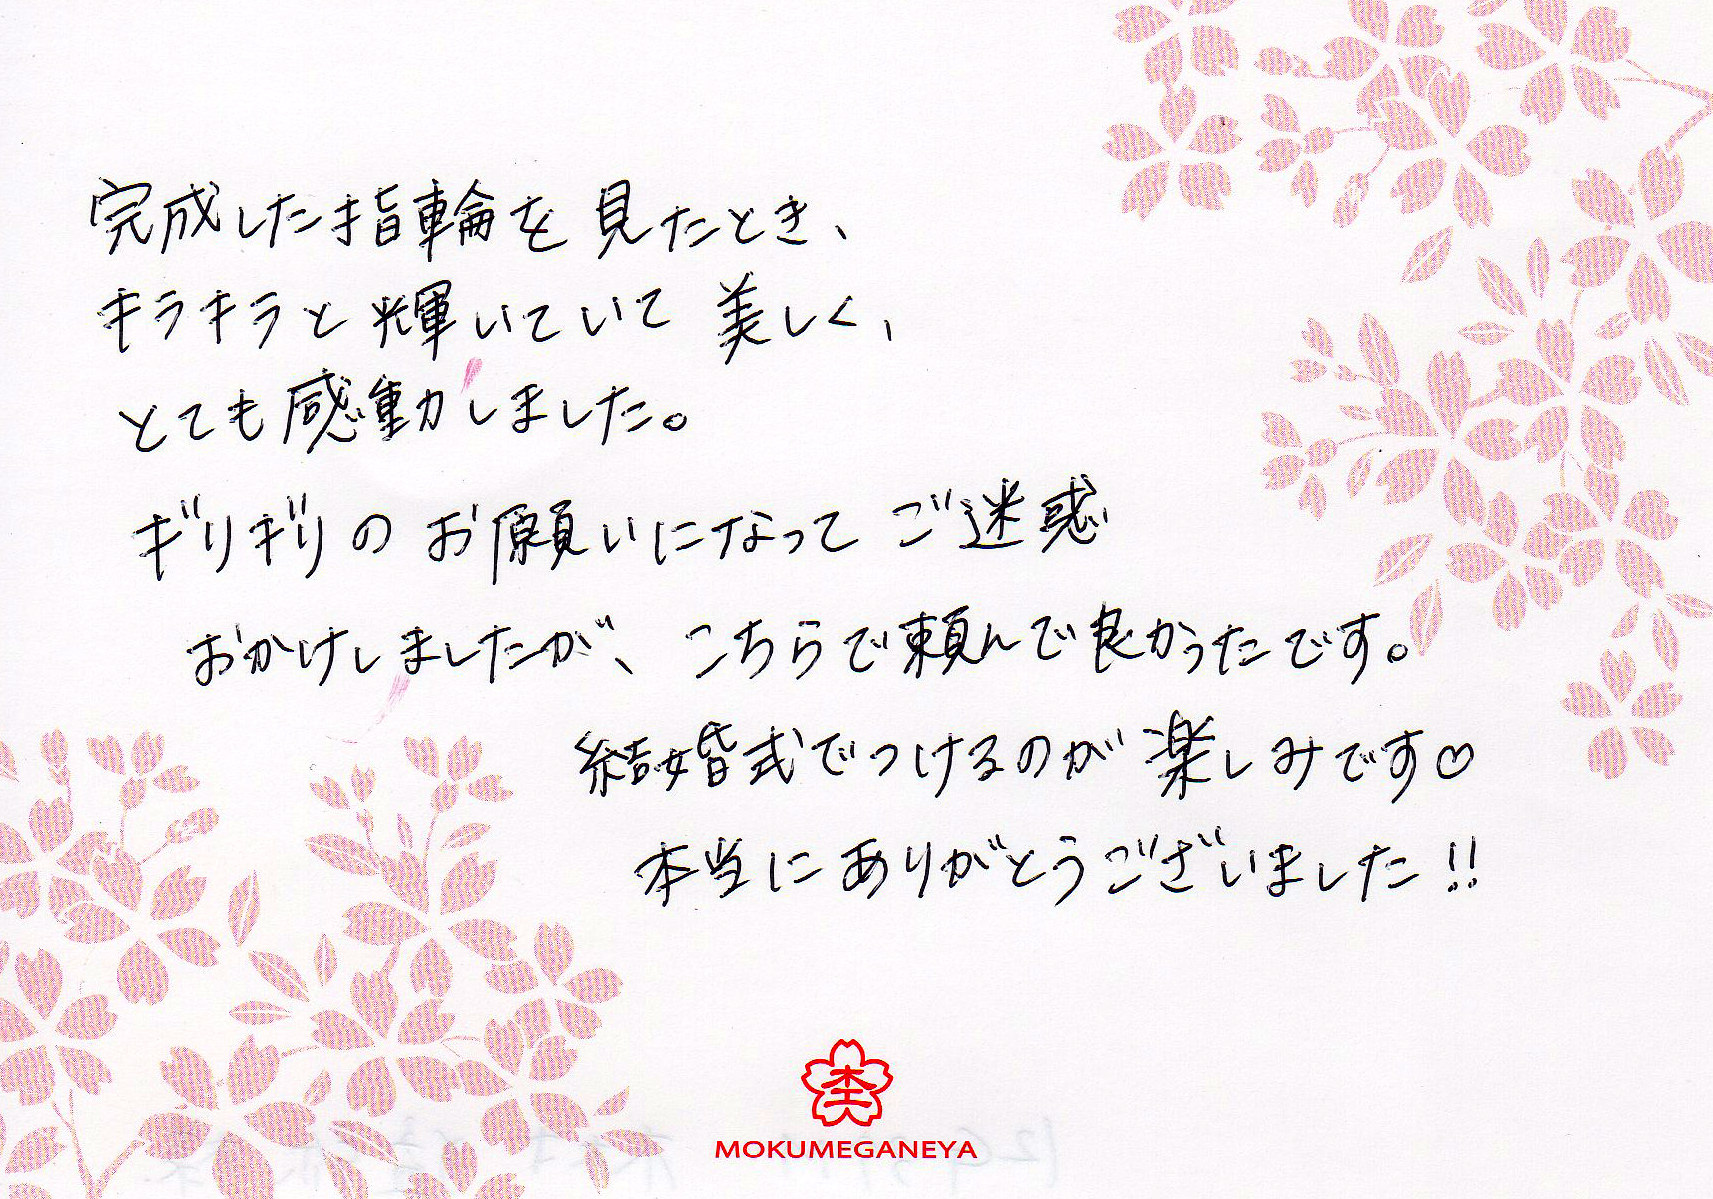 完成した指輪を見たとき、
キラキラと輝いていて美しく、
とても感動しました。
ギリギリのお願いになってご迷惑
おかけしましたが、こちらで頼んで良かったです。
結婚式でつけるのが楽しみです♡
本当にありがとうございました!!
MOKUMEGANEYA